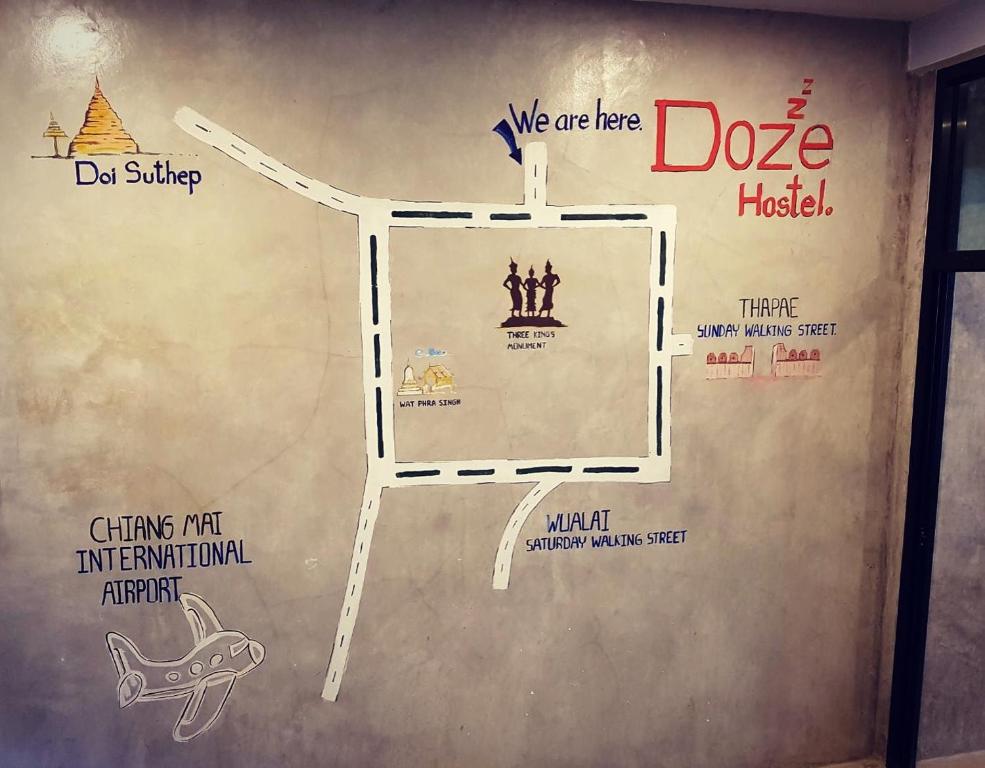 We are here.
Doze zz
Hostel.
Doi Suthep
THREE KINGS
MONUMENT
THAPAE
SUNDAY WALKING STREET.
WAT PHRA SINGH
CHIANG MAI
INTERNATIONAL
AIRPORT
WUALAI
SATURDAY WALKING STREET